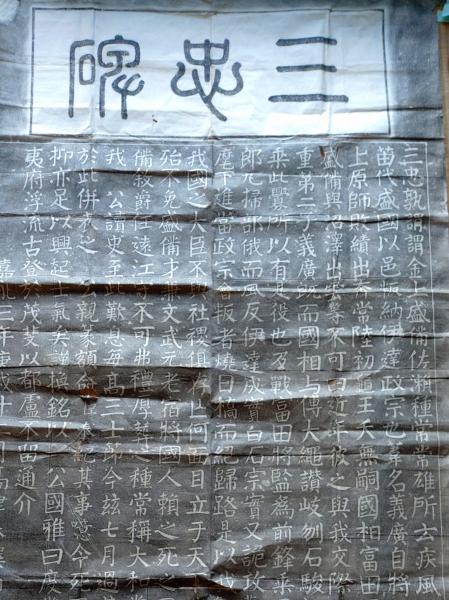 三忠碑
三忠孰謂謂金上盛備佐瀨種常常雄所士疾風
笛代盛國以邑叛納伊達政宗也葦名義廣自將
上原師敗績出奔常陸初龜王夭無嗣國相富田
盛備與沼澤出雲等不可曰近年彼之與我交際
重第二子義廣既而國相与傅大繩讃岐刎石駿
乘此釁所以有是役也及戰富田將監為前鋒乘
郎九掃部俄而風反伊達成實白石宗實又詭攻
麾下進當政宗者叛者燒日橋而絕歸路是以
我國之大臣不 社稷俱存上何面目立于天
殆不免盛備才兼文武元老宿將國人賴之死之
備敘爵任遠江守不可弗禮厚葬之種常稱大和
我 公讀史至此歎息每高三士節今茲七月過
於此併表之 公親篆額命 泰記其事意今死
抑亦足以興起士氣矣謹撰銘以 公國雅曰度
夷府浮流古登於茂斐以都盧不留通介
嘉永三年庚戌十